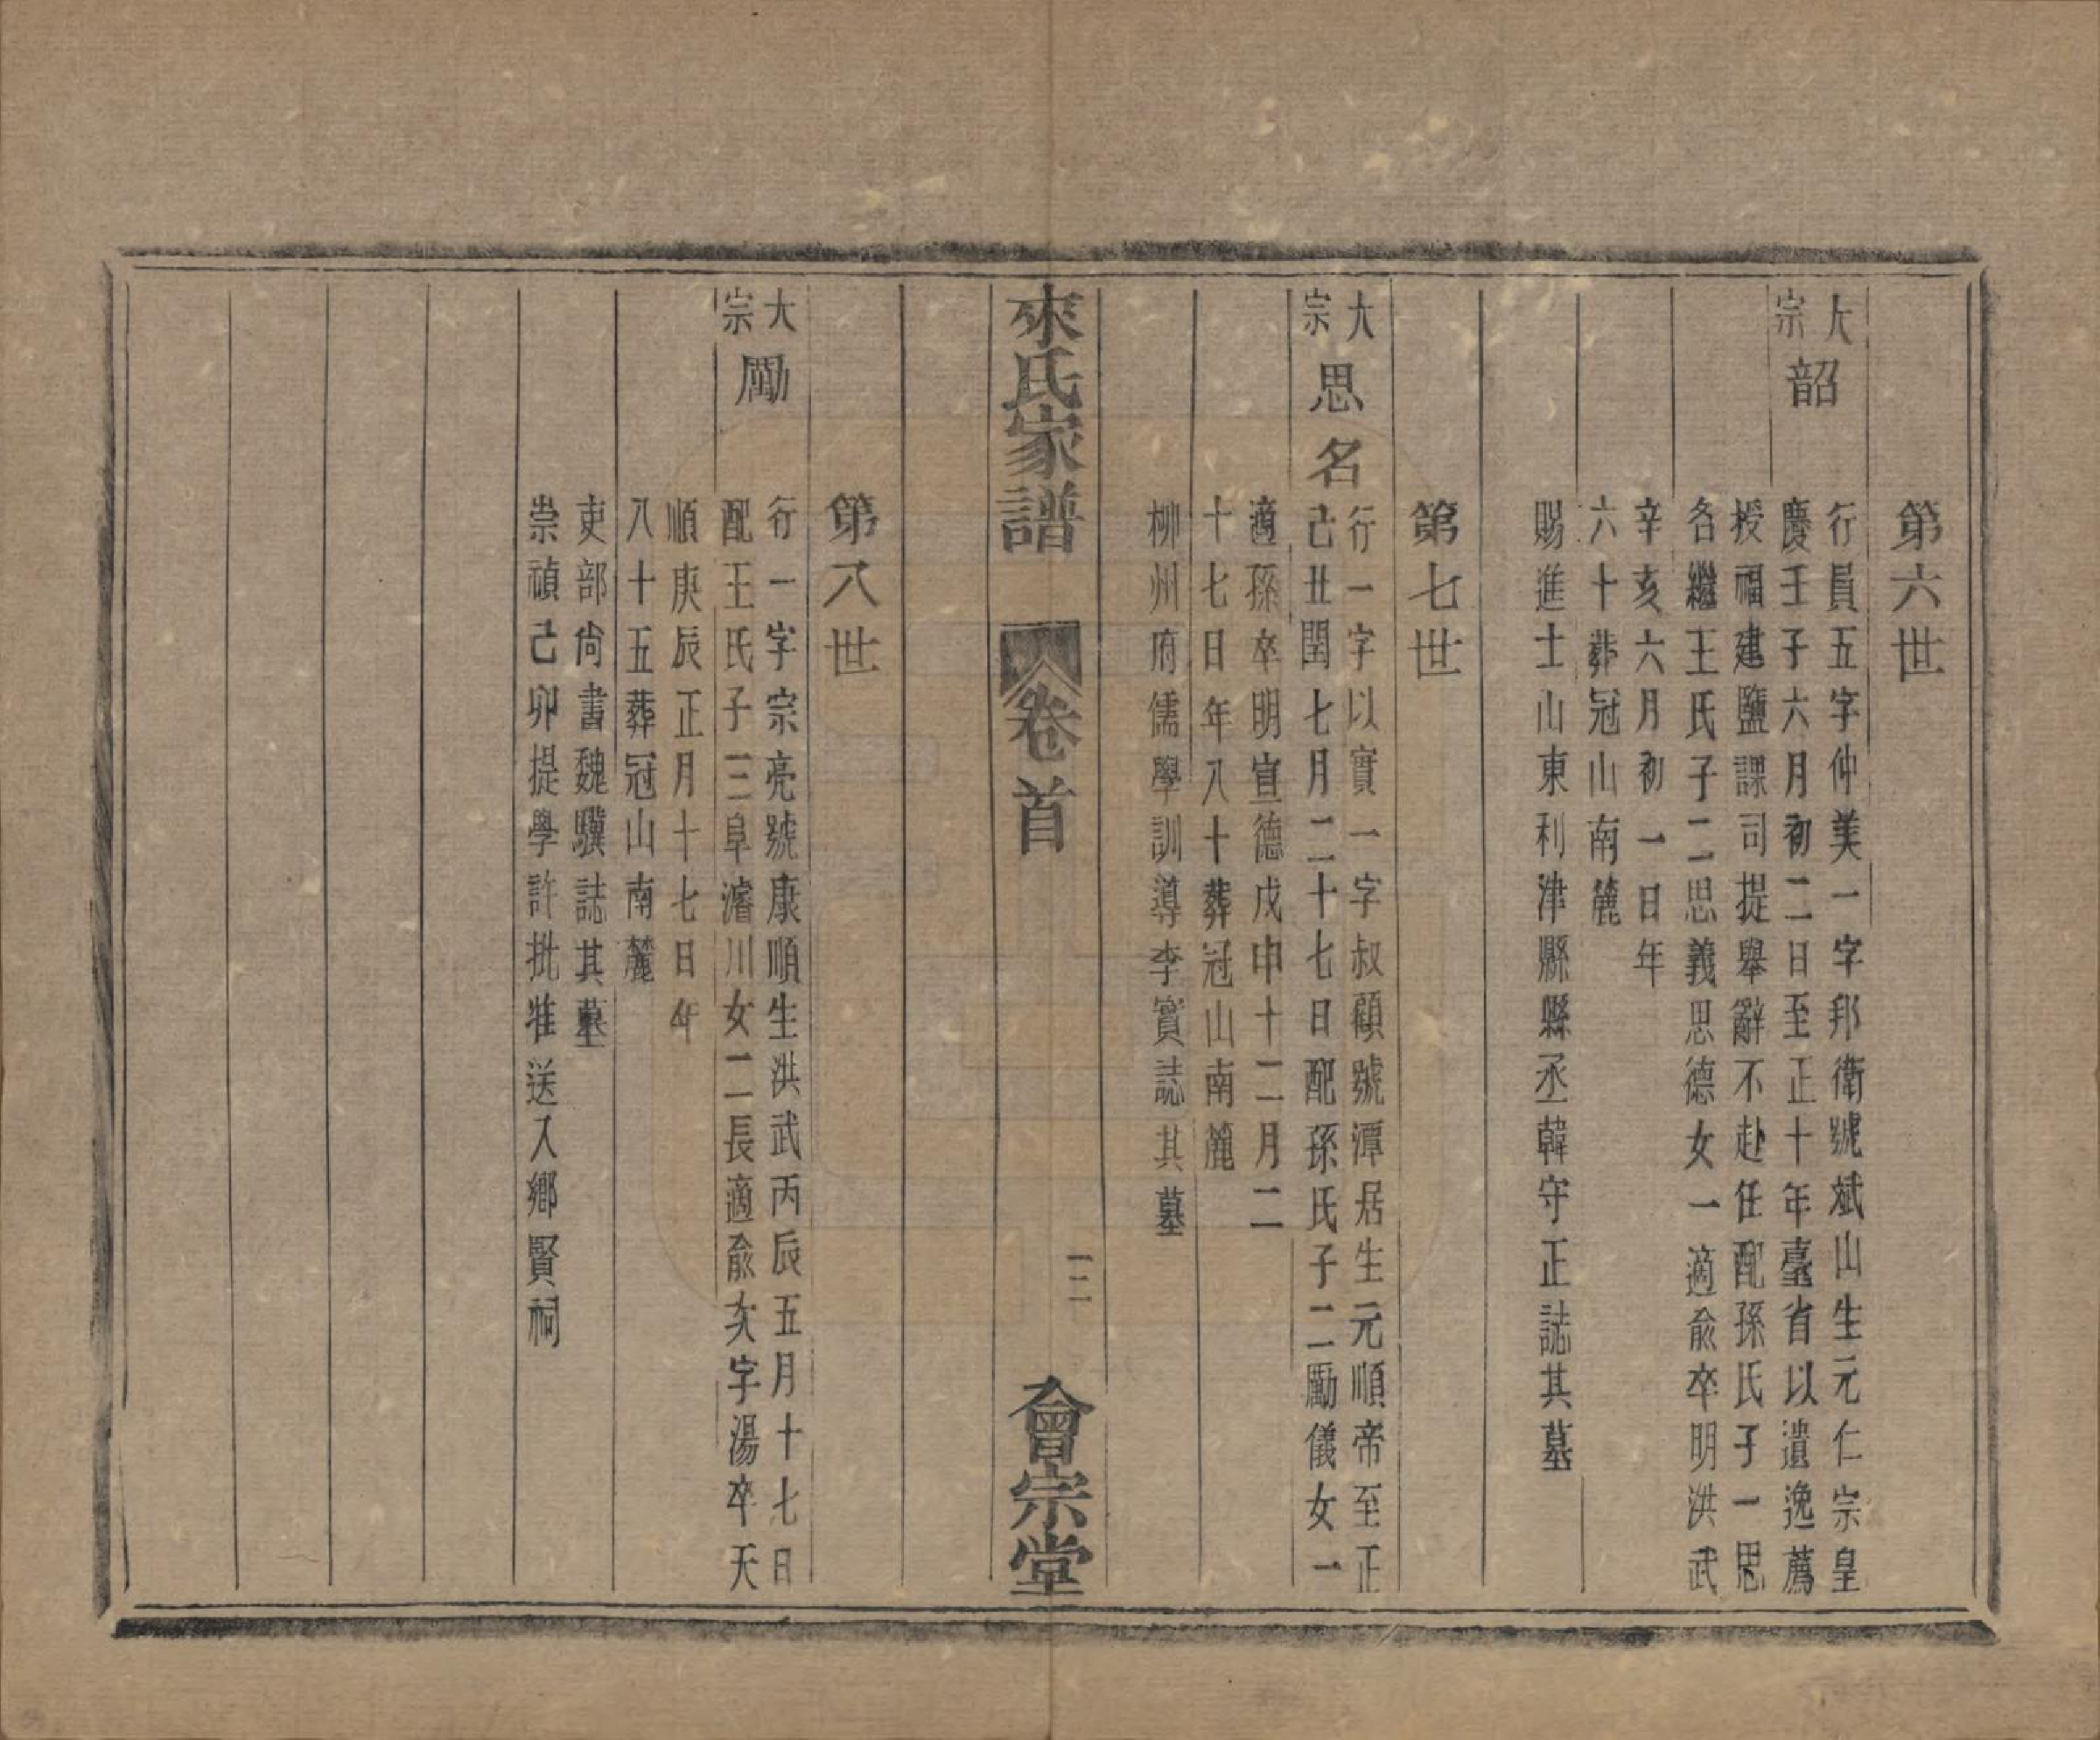 第六世
大宗
韶
行員五字仲美一字邦衛號斌山生元仁宗皇
慶壬子六月初二日至正十年臺省以遺逸薦
授福建鹽課司提舉辭不赴任配孫氏子一思
名繼王氏子二思義思德女一適俞卒明洪武
辛亥六月初一日年
六十葬冠山南麓
賜進士山東利津縣縣丞韓守正誌其墓
第七世
大宗
思名
行一字以實一字叔顧號潭居生元順帝至正
己丑閏七月二十七日配孫氏子二勵儀女一
適孫卒明宣德戊申十二月二
十七日年八十葬冠山南麓
柳州府儒學訓導李實誌其墓
來氏家譜
卷首
二
會宗堂
第八世
大宗
勵
行一字宗亮號康順生洪武丙辰五月十七日
配王氏子三阜濬川女二長適俞次字湯卒天
順庚辰正月十七日年
八十五葬冠山南麓
吏部尚書魏驥誌其墓
崇禎己卯提學許批准送入鄉賢祠